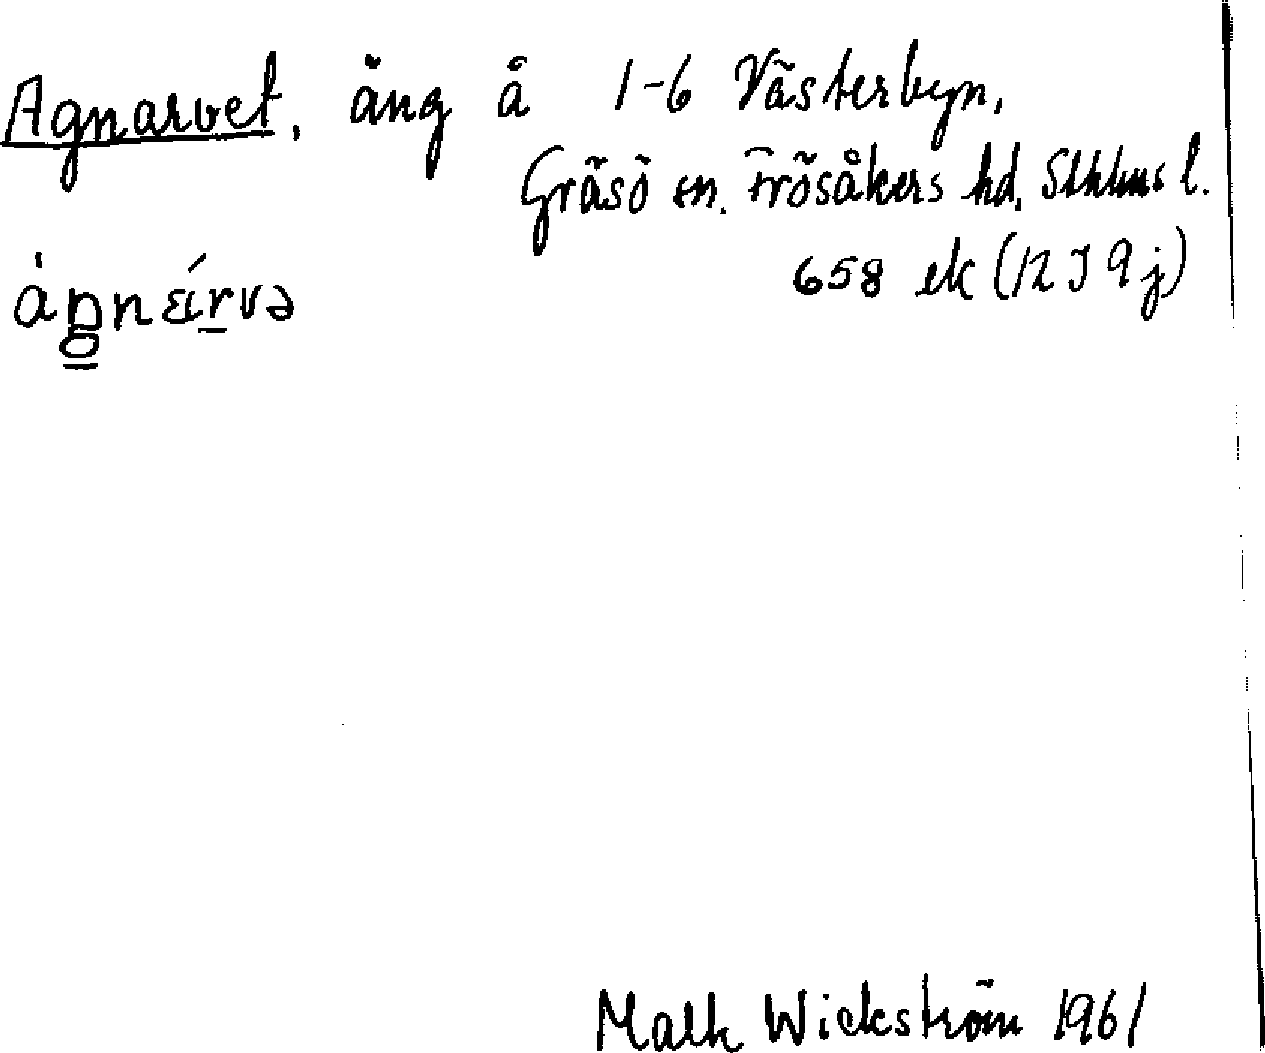 Agnarvet, äng å 1-6 Västerbyn,
Gräsö sn. Frösåkers hd, Sthlms l.
658 ek (12 I 9 j)
Wickström 1961